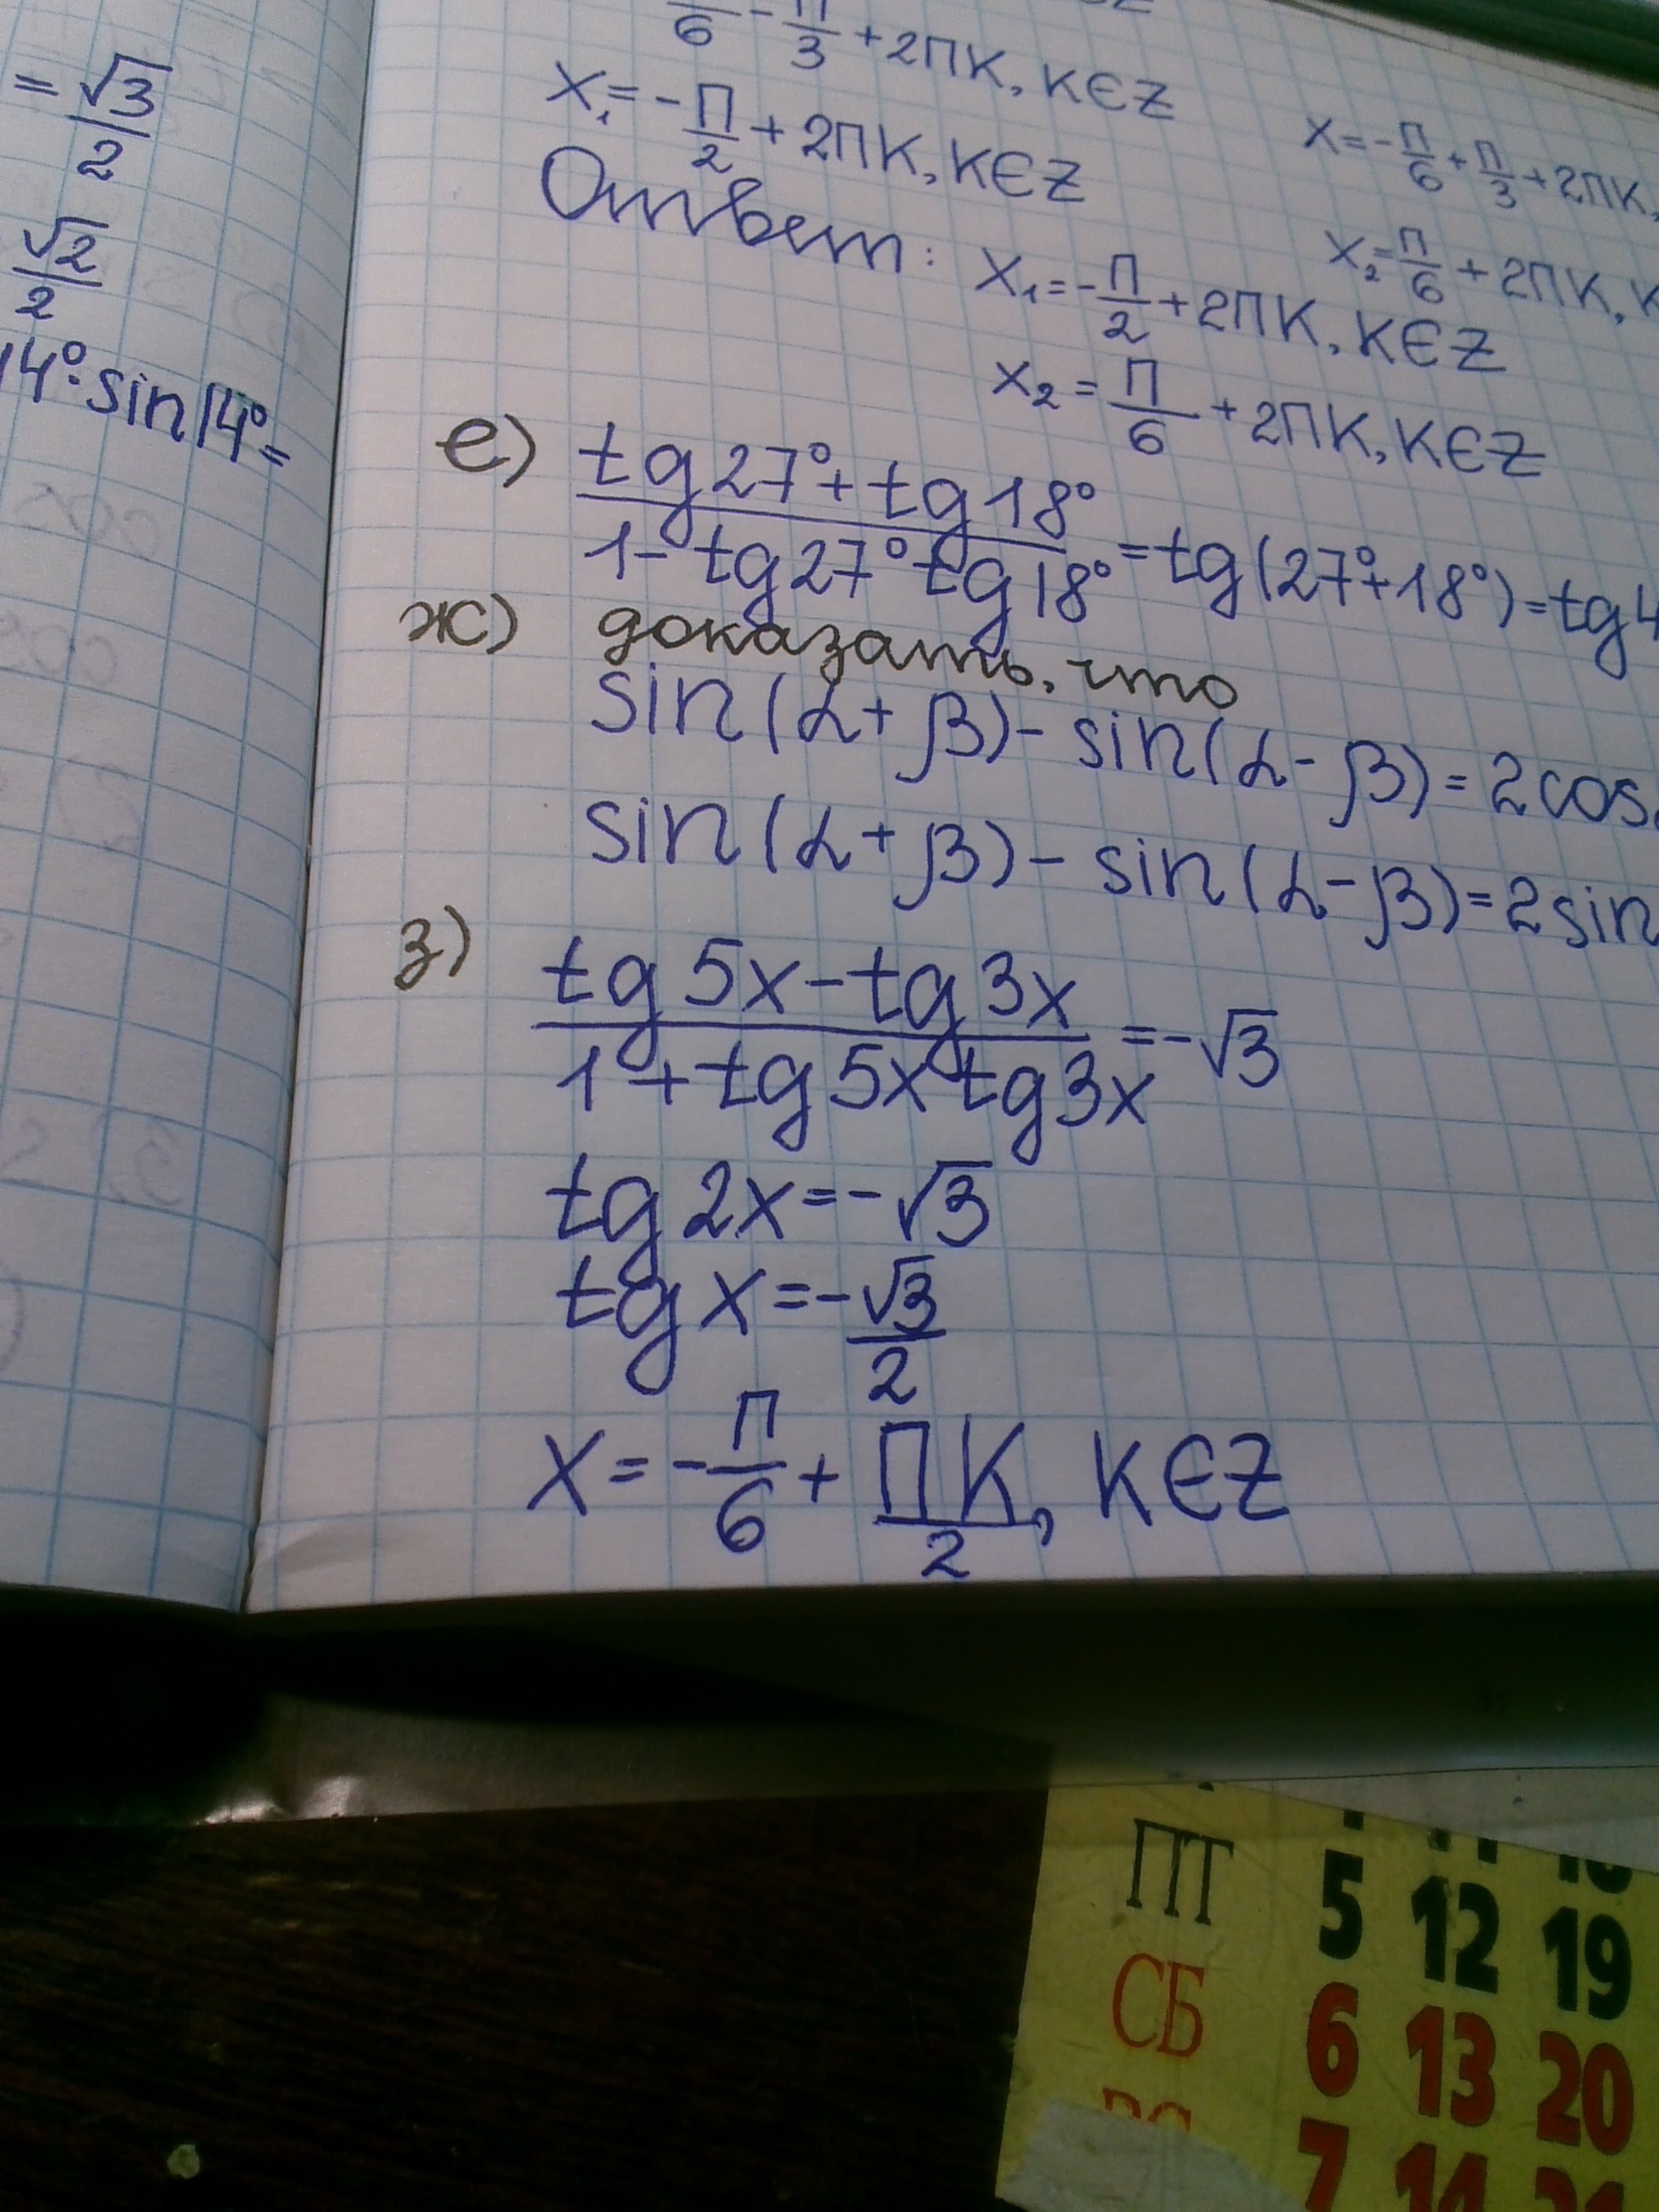 = √3/2
√2/2
14°·sin14°=
6 - П/3 + 2ПК, КЄZ
X₁ = -П/2 + 2ПК, КЄZ
X = -П/6 + П/3 + 2ПК,
X₂ = П/6 + 2ПК, К
Ответ: X₁ = -П/2 + 2ПК, КЄZ
X₂ = П/6 + 2ПК, КЄZ
е) (tg27° + tg18°)/(1 - tg27° tg18°) = tg(27°+18°) = tg4
ж) доказать, что
sin(α+β) - sin(α-β) = 2cos
sin(α+β) - sin(α-β) = 2sin
з) (tg5x - tg3x)/(1 + tg5x tg3x) = -√3
tg2x = -√3
tgx = -√3/2
X = -П/6 + ПК/2, КЄZ
ПТ 5 12 19
СБ 6 13 20
7 14 21